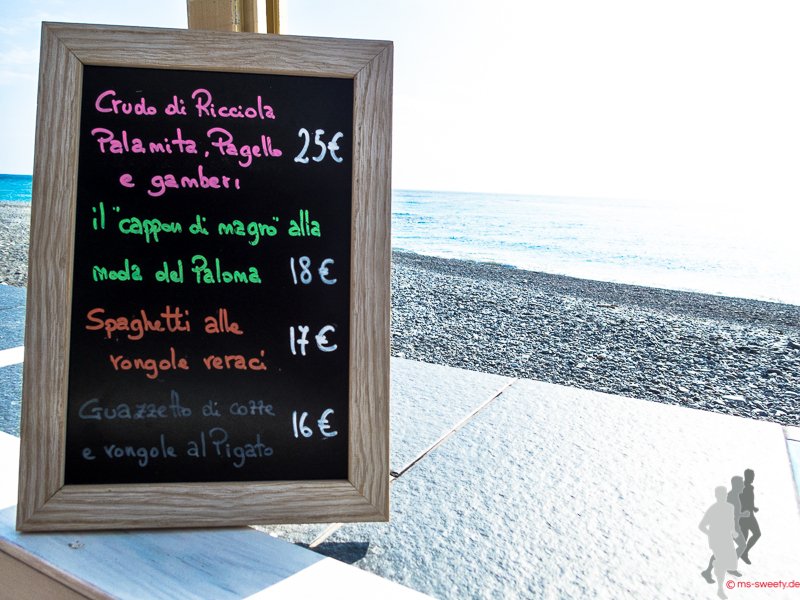 Crudo di Ricciola
Palamita, Pagello 25€
e gamberi
il "cappon di magro" alla
moda del Paloma 18€
Spaghetti alle 17€
vongole veraci
Guazzetto di cozze 16€
e vongole al Pigato
© ms-sweety.de